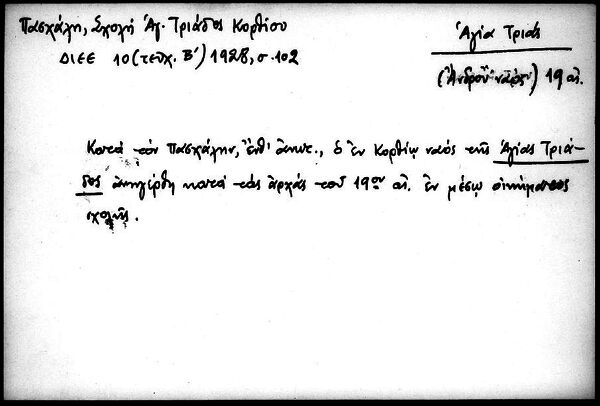 Πασχάλη, Σχολή Ἁγ. Τριάδος Κορθίου
ΔΙΕΕ 10 (τεῦχ. Β') 1928, σ. 102
Ἁγία Τριάς
(Ἄνδρου ναός) 19 αἰ.
Κατὰ τὸν Πασχάλην, ἔνθ' ἀνωτ., ὁ ἐν Κορθίῳ ναὸς τῆς Ἁγίας Τριά-
δος ἀνηγέρθη κατὰ τὰς ἀρχὰς τοῦ 19ου αἰ. ἐν μέσῳ οἰκήματος
σχολῆς.